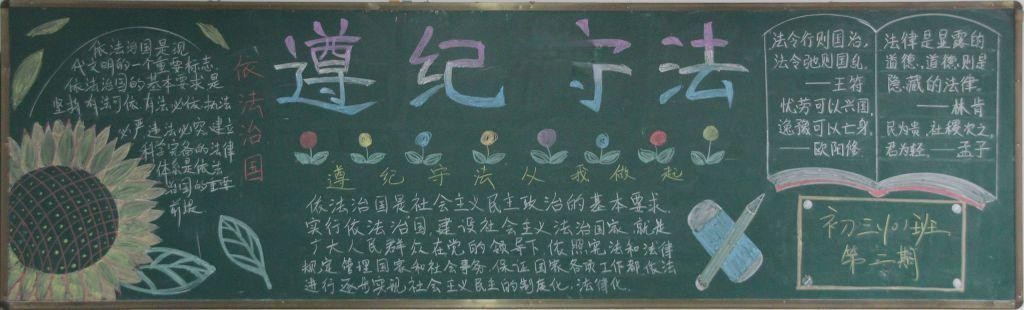 遵纪守法
依法治国是现
代文明的一个重要标志,
依法治国的基本要求是
坚持有法可依,有法必依,执法
必严,违法必究,建立
科学完备的法律
体系是依法
治国的重要
前提
依法治国
遵纪守法从我做起
依法治国是社会主义民主政治的基本要求.
实行依法治国,建设社会主义法治国家,就是
广大人民群众在党的领导下,依照宪法和法律
规定管理国家和社会事务,保证国家各项工作都依法
进行,逐步实现社会主义民主的制度化,法律化.
法令行则国治,
法令弛则国乱.
——王符
忧劳可以兴国,
逸豫可以亡身.
——欧阳修
法律是显露的
道德、道德则是
隐藏的法律.
——林肯
民为贵,社稷次之,
君为轻.——孟子
初三(10)班
第三期